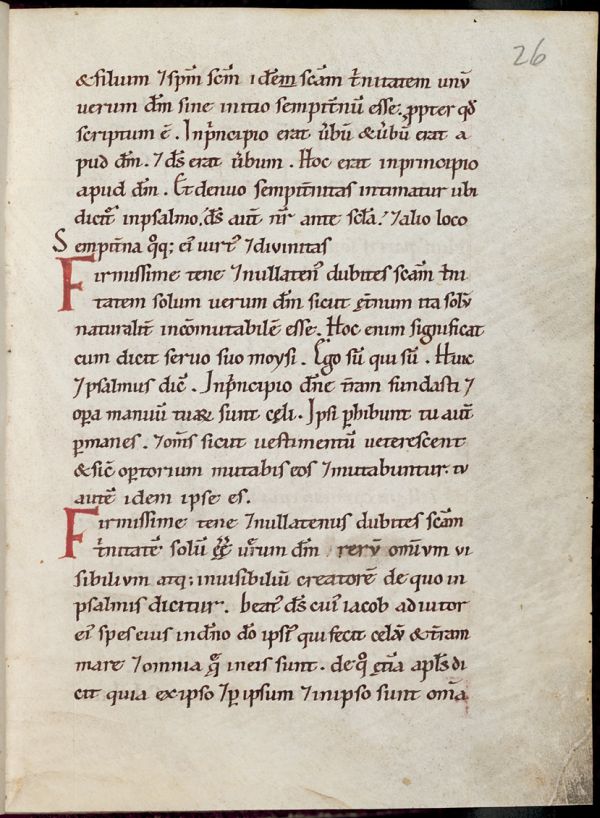 26
& filium ⁊ sp̄m sc̄m idem sc̄am t̓nitatem unū
uerum dm̄ sine initio sempit̄nū esse. ꝓpter qd̄
scriptum ē. Inp̓ncipio erat úbū & úbū erat a
pud dm̄. ⁊ ds̄ erat úbum. Hoc erat inprincipio
apud dm̄. Et denuo sempit̄nitas intimatur ubi
dicit᷑ inpsalmo. ds̄ aut̄ nr̄ ante scl̄a. ⁊ alio loco
Sempit̄na qq; ei᷒ uirt᷒ ⁊ diuinitas
Firmissime tene ⁊ nullaten᷒ dubites sc̄am t̓ni
tatem solum uerum dm̄ sicut et̄num ita solū
naturalit̄ incōmutabilē esse. Hoc enim significat
cum dicit seruo suo moysi. Ego sū qui sū. Hinc
⁊ psalmus dic̄. Inp̓ncipio dn̄e t̄ram fundasti ⁊
oꝑa manuū tuaꝝ sunt cęli. Ipsi ꝑhibunt tu aut̄
ꝑmanes. ⁊ om̄s sicut uestimentū ueterescent
& sic̄ oꝑtorium mutabis eos ⁊ mutabuntur. tu
autē idem ipse es.
Firmissime tene ⁊ nullatenus dubites sc̄am
t̓nitatē solū uerum dm̄ rerū omnium ui
sibilium atq; inuisibiliū creatorē de quo in
psalmis dicitur. beat᷒ ds̄ cui᷒ iacob adiutor
ei᷒ spes eius indn̄o dō ipsi᷒ qui fecit celū & t̄ram
mare ⁊ omnia q̄ ineis sunt. de qͦ et̄ia apl̄s di
cit quia exipso ⁊ ꝑ ipsum ⁊ inipso sunt om̄a